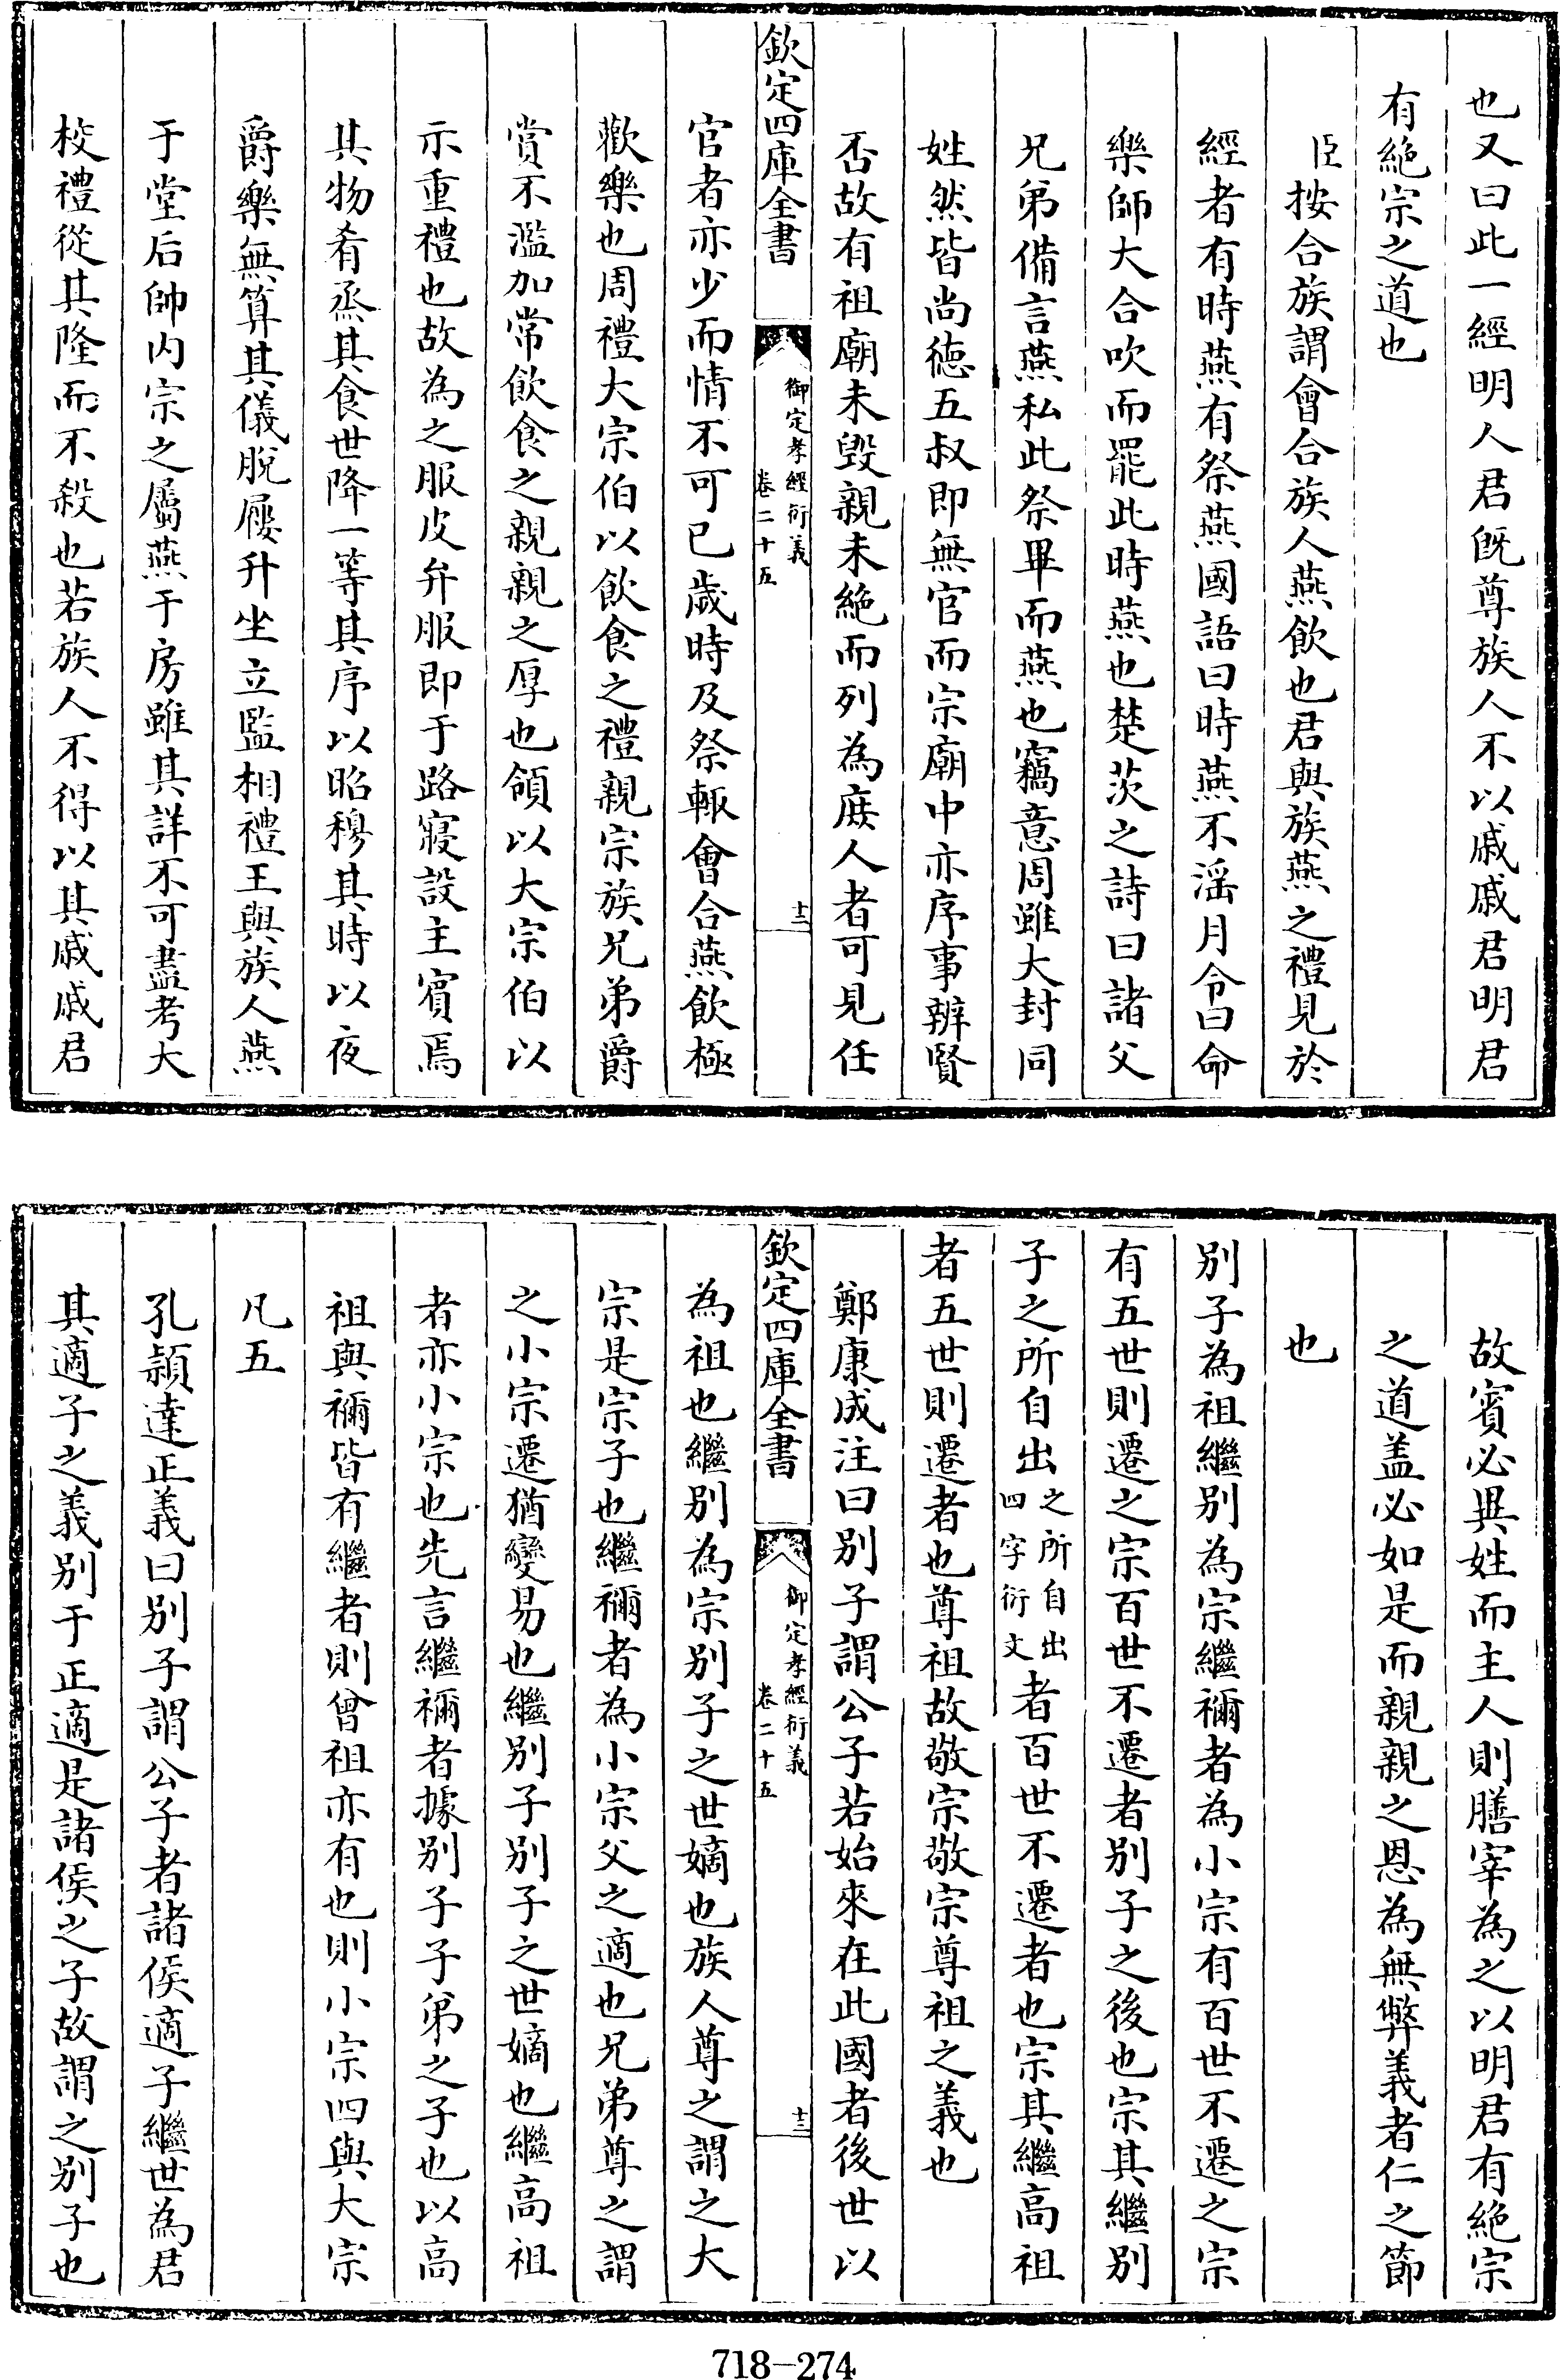 也又曰此一經明人君既尊族人不以戚戚君明君
有絶宗之道也
臣按合族謂會合族人燕飲也君與族燕之禮見於
經者有時燕有祭燕國語曰時燕不淫月令曰命
樂師大合吹而罷此時燕也楚茨之詩曰諸父
兄弟備言燕私此祭畢而燕也竊意周雖大封同
姓然皆尚德五叔即無官而宗廟中亦序事辨賢
否故有祖廟未毀親未絶而列為庶人者可見任
欽定四庫全書
御定孝經衍義
卷二十五
十二
官者亦少而情不可已歲時及祭輒會合燕飲極
歡樂也周禮大宗伯以飲食之禮親宗族兄弟爵
賞不濫加常飲食之親親之厚也領以大宗伯以
示重禮也故為之服皮弁服即于路寢設主賓焉
其物肴烝其食世降一等其序以昭穆其時以夜
爵樂無算其儀脫屨升坐立監相禮王與族人燕
于堂后帥内宗之屬燕于房雖其詳不可盡考大
校禮從其隆而不殺也若族人不得以其戚戚君
故賓必異姓而主人則膳宰為之以明君有絶宗
之道盖必如是而親親之恩為無弊義者仁之節
也
别子為祖繼别為宗繼禰者為小宗有百世不遷之宗
有五世則遷之宗百世不遷者别子之後也宗其繼别
子之所自出之所自出四字衍文者百世不遷者也宗其繼高祖
者五世則遷者也尊祖故敬宗敬宗尊祖之義也
鄭康成注曰别子謂公子若始來在此國者後世以
欽定四庫全書
御定孝經衍義
卷二十五
十三
為祖也繼别為宗别子之世嫡也族人尊之謂之大
宗是宗子也繼禰者為小宗父之適也兄弟尊之謂
之小宗遷猶變易也繼别子别子之世嫡也繼高祖
者亦小宗也先言繼禰者據别子子弟之子也以高
祖與禰皆有繼者則曾祖亦有也則小宗四與大宗
凡五
孔穎達正義曰别子謂公子者諸侯適子繼世為君
其適子之義别于正適是諸侯之子故謂之别子也
718-274